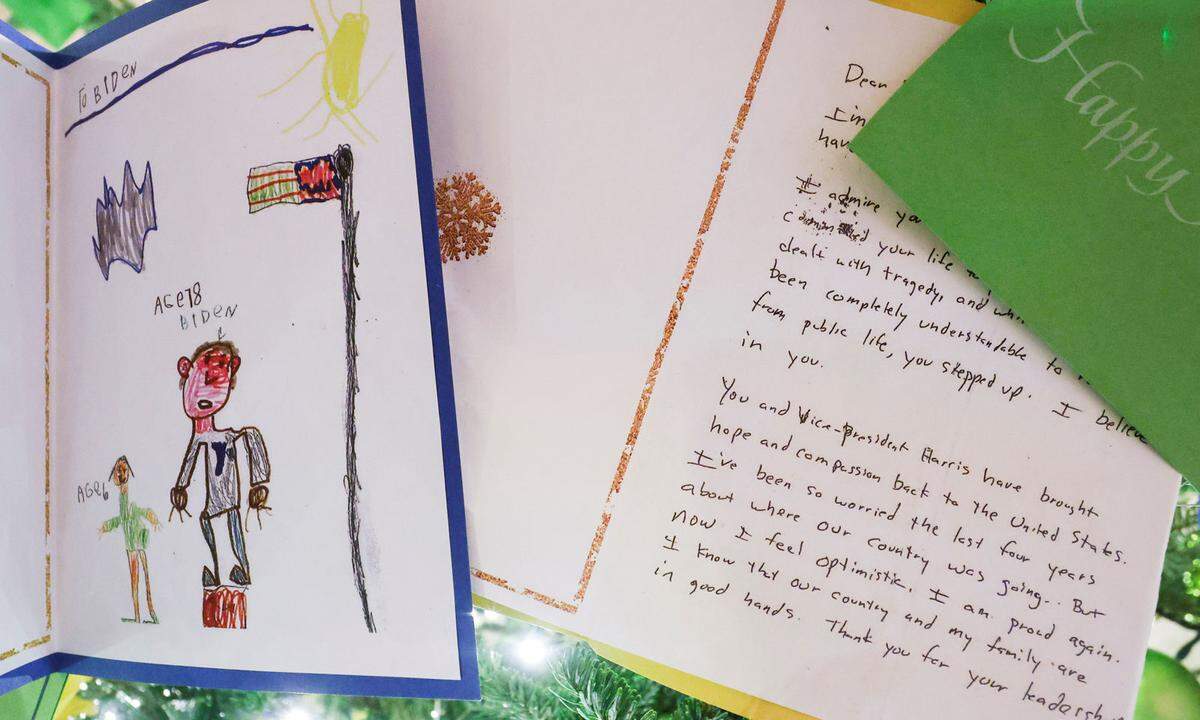 To BIDEN
AGE 78
BIDEN
AGE 6
Dear
I'm
have
I admire you
your life to
dealt with tragedy, and
been completely understandable to
from public life, you stepped up. I believe
in you.
You and Vice-president Harris have brought
hope and compassion back to the United States.
I've been so worried the last four years
about where our country was going.. But
now I feel optimistic. I am proud again.
I know that our country and my family are
in good hands. Thank you for your
Happy